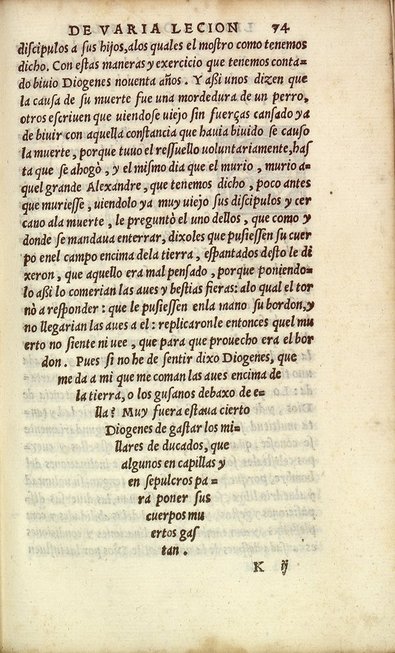 DE VARIA LECION 74
discipulos a sus hijos, alos quales el mostro como tenemos
dicho. Con estas maneras y exercicio que tenemos conta-
do biuio Diogenes nouenta años. Y aßi unos dizen que
la causa de su muerte fue una mordedura de un perro,
otros escriuen que uiendose uiejo sin fuerças cansado ya
de biuir con aquella constancia que hauia biuido se causo
la muerte, porque tuuo el ressuello uoluntariamente, has
ta que se ahogò, y el mismo dia que el murio, murio a-
quel grande Alexandre, que tenemos dicho, poco antes
que muriesse, uiendolo ya muy uiejo sus discipulos y cer
cano ala muerte, le preguntò el uno dellos, que como y
donde se mandaua enterrar, dixoles que pusiessen su cuer
po enel campo encima dela tierra, espantados desto le di
xeron, que aquello era mal pensado, porque poniendo-
lo aßi lo comerian las aues y bestias fieras: alo qual el tor
nò a responder: que le pusiessen enla mano su bordon, y
no llegarian las aues a el: replicaronle entonces quel mu
erto no siente ni uee, que para que prouecho era el bor
don. Pues si no he de sentir dixo Diogenes, que
me da a mi que me coman las aues encima de
la tierra, o los gusanos debaxo de e-
lla? Muy fuera estaua cierto
Diogenes de gastar los mi-
llares de ducados, que
algunos en capillas y
en sepulcros pa-
ra poner sus
cuerpos mu
ertos gas
tan.
K ij